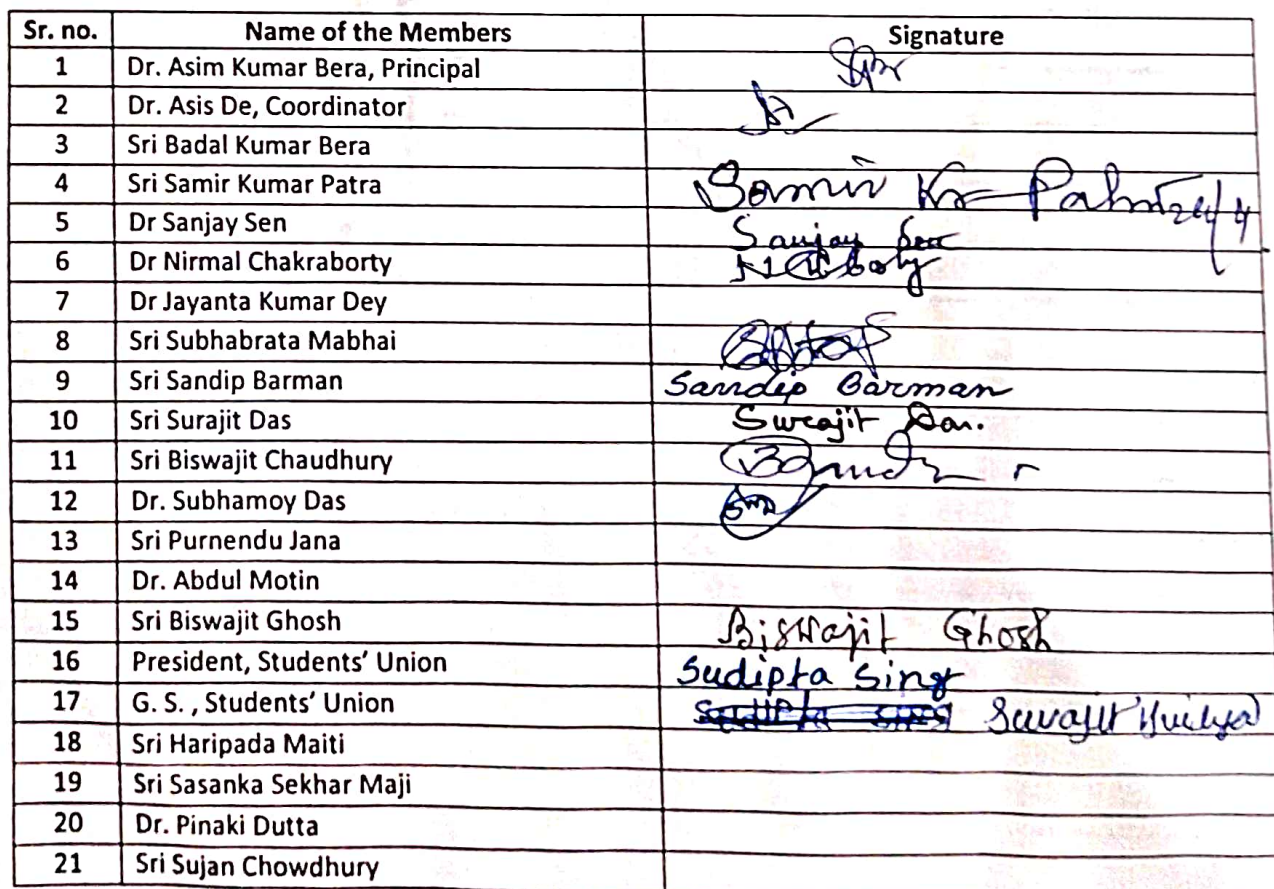 Sr. no. Name of the Members Signature
1 Dr. Asim Kumar Bera, Principal
2 Dr. Asis De, Coordinator
3 Sri Badal Kumar Bera
4 Sri Samir Kumar Patra Samir Kr Patra
5 Dr Sanjay Sen Sanjay Sen
6 Dr Nirmal Chakraborty
7 Dr Jayanta Kumar Dey
8 Sri Subhabrata Mabhai
9 Sri Sandip Barman Sandip Barman
10 Sri Surajit Das Surajit Das.
11 Sri Biswajit Chaudhury
12 Dr. Subhamoy Das
13 Sri Purnendu Jana
14 Dr. Abdul Motin
15 Sri Biswajit Ghosh Biswajit Ghosh
16 President, Students’ Union Sudipta Sing
17 G. S. , Students’ Union
18 Sri Haripada Maiti
19 Sri Sasanka Sekhar Maji
20 Dr. Pinaki Dutta
21 Sri Sujan Chowdhury